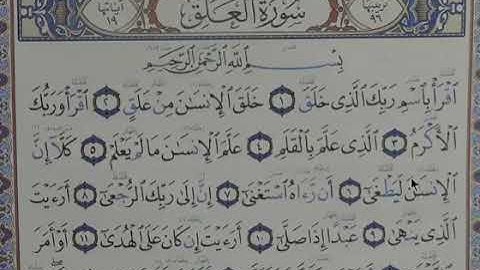 ترتيبها ٩٦ سورة العلق آياتها ١٩
بِسْمِ ٱللَّهِ ٱلرَّحْمَٰنِ ٱلرَّحِيمِ
ٱقْرَأْ بِٱسْمِ رَبِّكَ ٱلَّذِى خَلَقَ ١ خَلَقَ ٱلْإِنسَٰنَ مِنْ عَلَقٍ ٢ ٱقْرَأْ وَرَبُّكَ
ٱلْأَكْرَمُ ٣ ٱلَّذِى عَلَّمَ بِٱلْقَلَمِ ٤ عَلَّمَ ٱلْإِنسَٰنَ مَا لَمْ يَعْلَمْ ٥ كَلَّآ إِنَّ
ٱلْإِنسَٰنَ لَيَطْغَىٰٓ ٦ أَن رَّءَاهُ ٱسْتَغْنَىٰٓ ٧ إِنَّ إِلَىٰ رَبِّكَ ٱلرُّجْعَىٰٓ ٨ أَرَءَيْتَ
ٱلَّذِى يَنْهَىٰ ٩ عَبْدًا إِذَا صَلَّىٰٓ ١٠ أَرَءَيْتَ إِن كَانَ عَلَى ٱلْهُدَىٰٓ ١١ أَوْ أَمَرَ